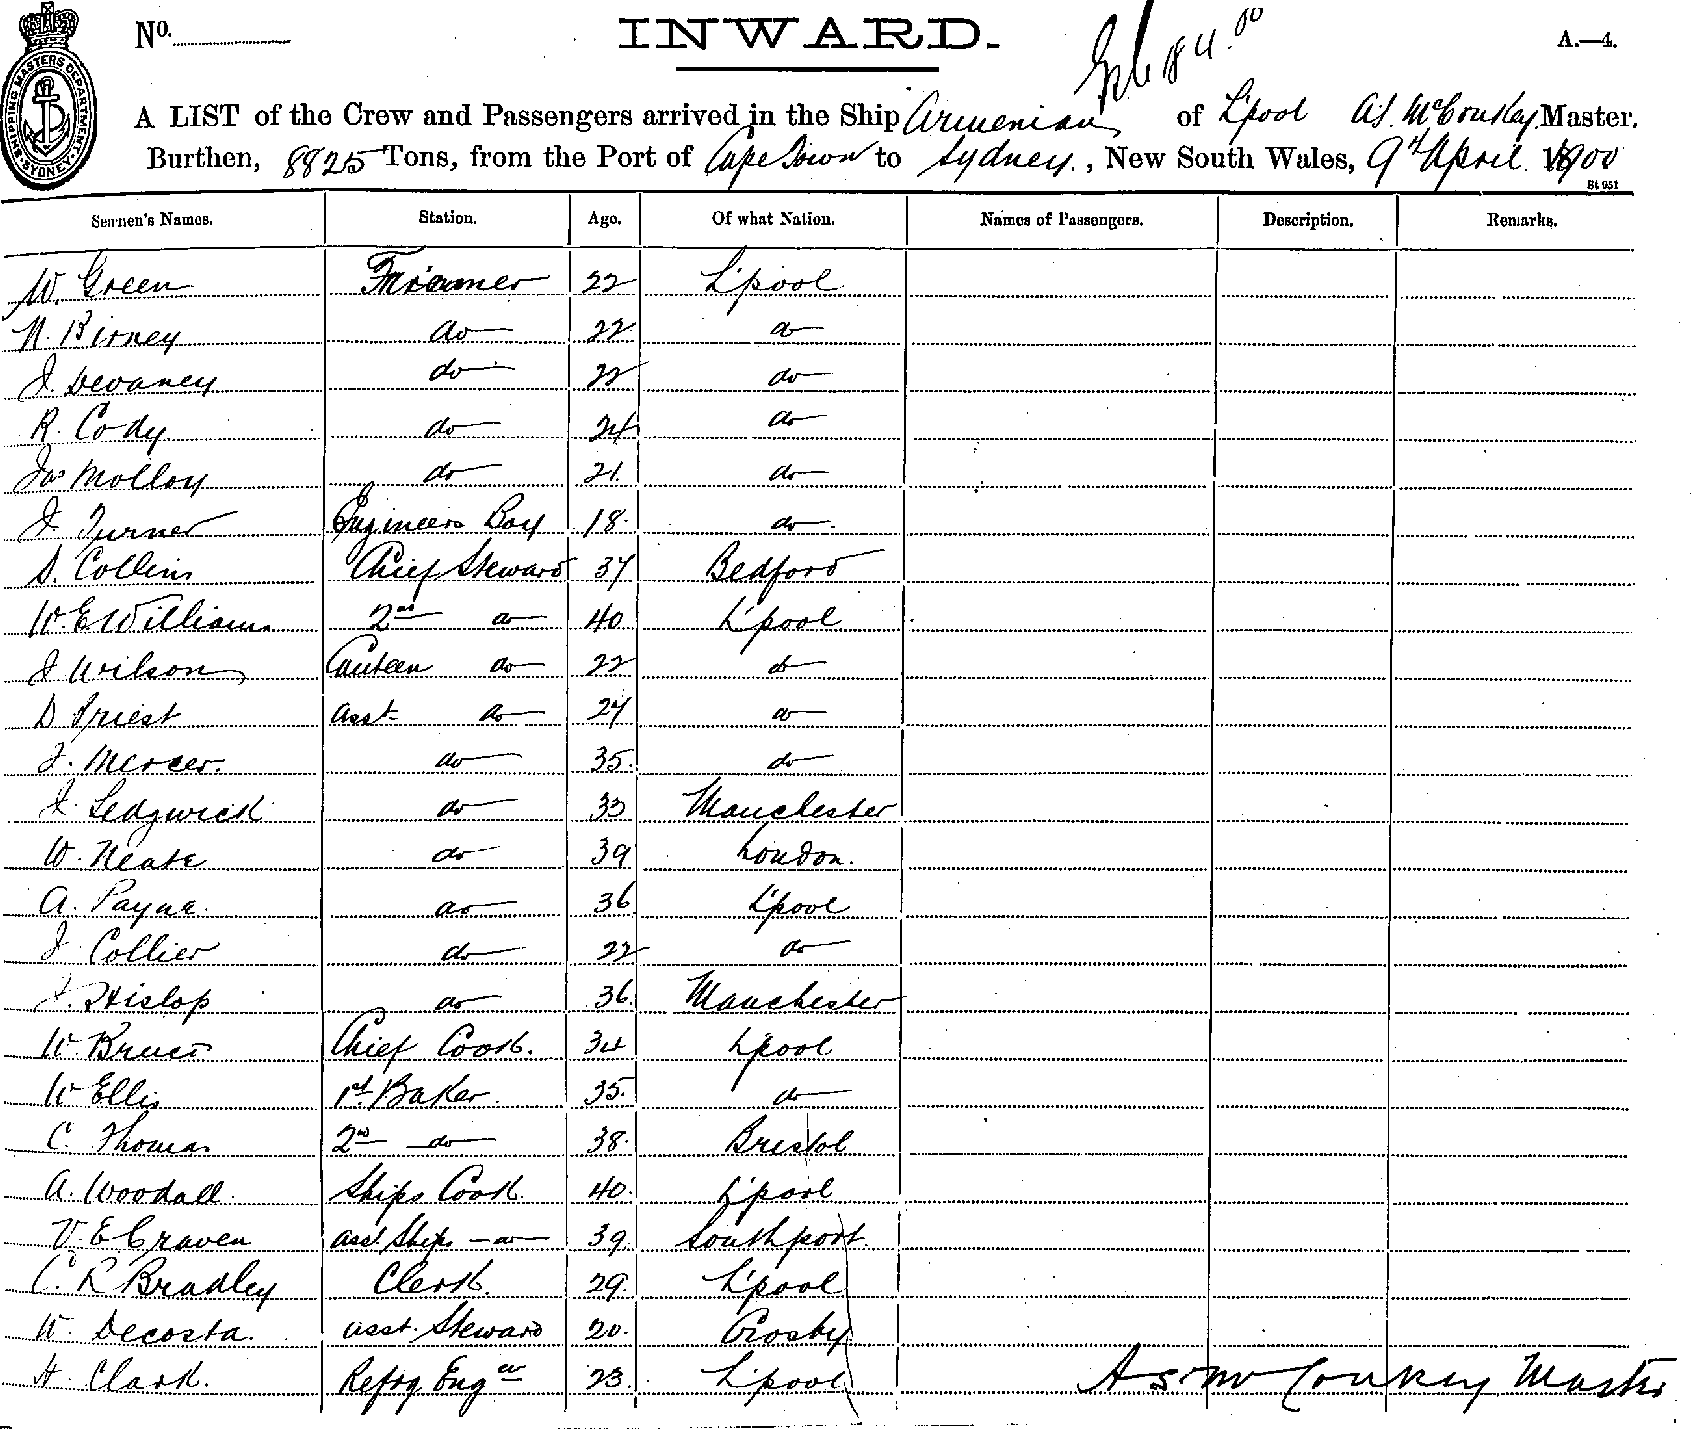 No. INWARD. A.—4.
SHIPPING MASTERS DEPARTMENT. SYDNEY.
A LIST of the Crew and Passengers arrived in the Ship Armenian of L'pool A.S. McConkey Master.
Burthen, 8825 Tons, from the Port of Cape Town to Sydney, New South Wales, 9th April 1900
St 951
Seamen's Names. Station. Age. Of what Nation. Names of Passengers. Description. Remarks.
W. Green Trimmer 22 L'pool
N. Birney do 22 do
J. Devaney do 22 do
R. Cody do 24 do
Jas Molloy do 21 do
J. Turner Engineers Boy 18 do
D. Collins Chief Steward 37 Bedford
W. E Williams 2nd do 40 L'pool
J Wilson Canteen do 22 do
D Priest asst do 27 do
J. Mercer. do 35 do
J. Sedgwick do 33 Manchester
W. Neate do 39 London.
A. Payne. do 36 L'pool
J Collier do 22 do
J. Hislop do 36 Manchester
W Bruce Chief Cook. 34 L'pool
W Ellis 1st Baker. 35 do
C. Thomas 2nd do 38 Bristol
A. Woodall. Ships Cook. 40 L'pool
V. E Craven asst Ships do 39 Southport.
C. R Bradley Clerk. 29 L'pool
W. Decosta. asst. Steward 20 Crosby
H. Clark. Refrg Engr 23 L'pool
A S McConkey Master